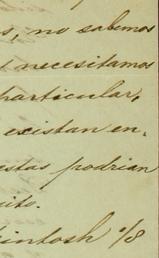 s, no sabemos
necesitamos
particular,
existan en-
estas podrian
uito.
intosh %